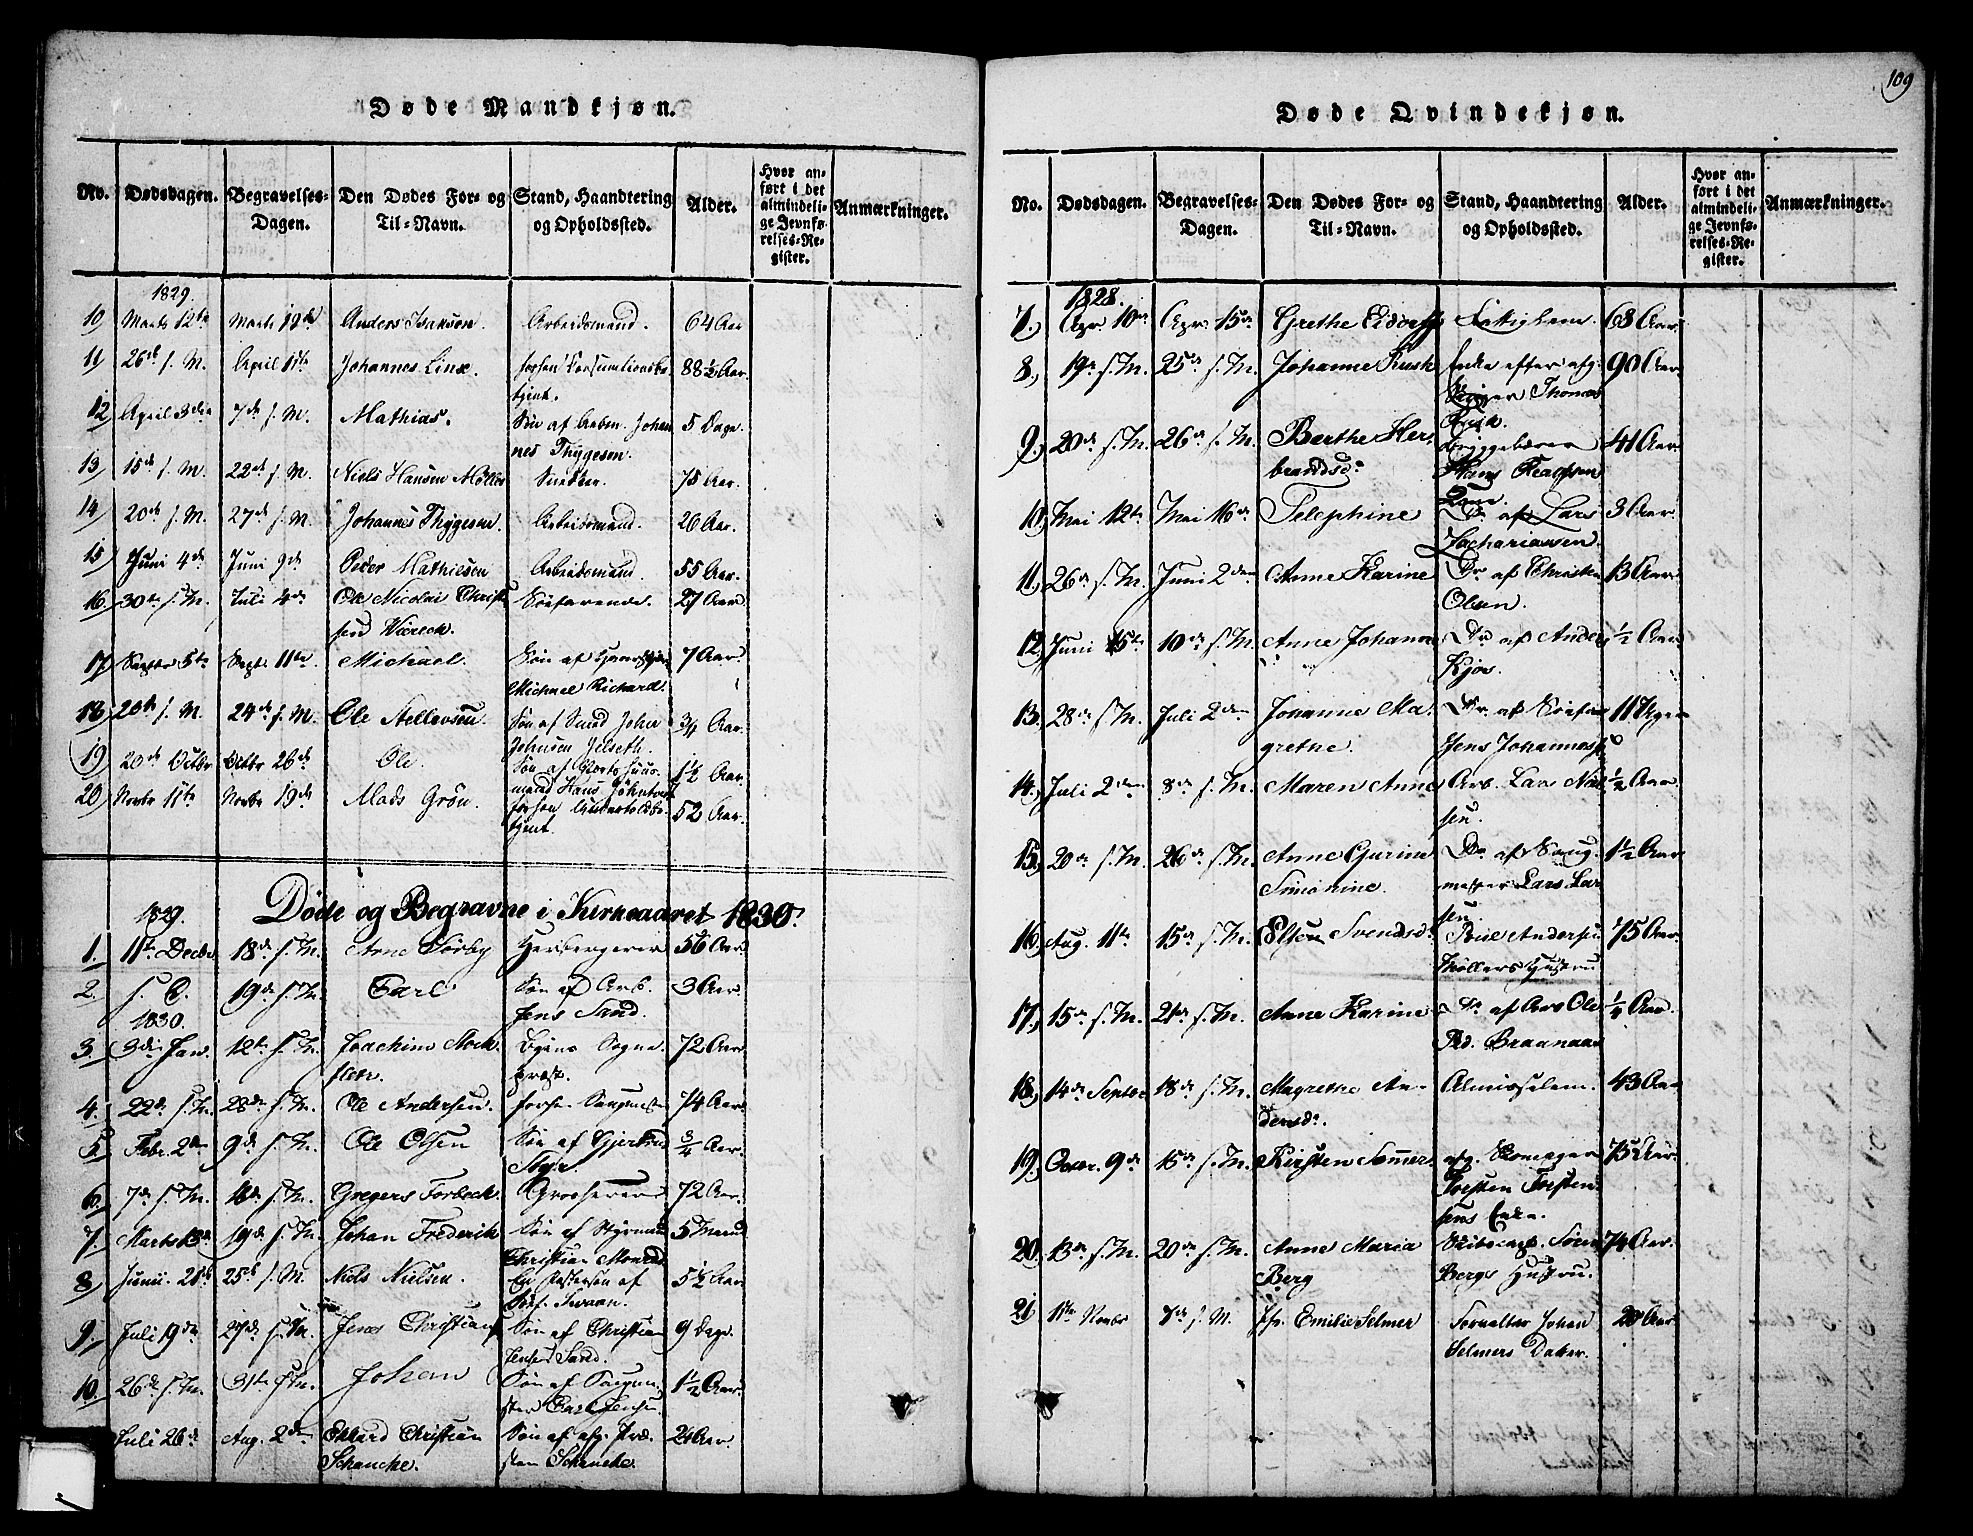 109
Døde Mandkjøn.
No. Dødsdagen. Begravelses-Dagen. Den Dødes For- og Til-Navn. Stand, Haandtering og Opholdssted. Alder. Hvor anført i det almindelige Jevnførelses-Register. Anmærkninger.
1829.
10) Marts 12te Marts 19de Anders Isaksen. Arbeidsmand. 64 Aar
11) 26de s. M. April 1ste Johannes Linx. forhen Consumtionsbetjent. 88½ Aar.
12 April 3die 7de s. M. Mathias. Søn af Arbm. Johannes Thygesen. 5 Dage.
13) 15de s. M. 22de s. M. Niels Hansen Møller Snedker. 75 Aar.
14) 20de s. M. 27de s. M. Johannes Thygesen. Arbeidsmand. 26 Aar.
15) Juni 4de Juni 9de Peder Mathiesen Arbeidsmand. 55 Aar.
16. 30te s. M. Juli 4de Ole Nicolai Christensen Søefarende. 27 Aar
17) Septbr 5te Septr 11te Michael. Søn af Michael Richard. 7 Aar.
18 20de s. M. 24de s. M. Ole Stellevsen. Søn af Sand John Johnsen Jelseth. ¾ Aar.
19) 20de Octbr Octbr 26de Ole. Søn af Hans 1½ Aar.
20) Novbr 11te Novbr 19de Mads Grøn. forhen Undertoldbetjent. 52 Aar.
Døde og Begravne i Kirkeaaret 1830.
1829.
1. 11te Decbr 18de s. M. Arne Sørby Herbergerer 56 Aar
2. s. D. 19de s. M. Carl Søn af Arb. Jens Sand. 3 Aar.
1830.
3. 3die Jan. 12te s. M. Joachim Stockfleth. Byens Sognepræst. 72 Aar
4. 22de s. M. 28de s. M. Ole Andersen. forhen Saugmester 74 Aar.
5. Febr. 2den 9de s. M. Ole Olsen Søn af Gjertrud ¾ Aar.
6. 7de s. M. 16de s. M. Gregers Forbech. Grosserer 72 Aar.
7. Marts 13de 19de s. M. Johan Frederik Søn af Styrmand Christian Monrad 5 Maand
8) Junii. 21de 25de s. M. Niels Nielsen. En Pattersøn af Svaan. 5½ Aar
9. Juli 19de 27de s. M. Jens Christian Søn af Christian Jensen Sand. 9 Dage.
10. 26de s. M. 31te s. M. Johan Søn af Saugmester Carl Jensen. 1½ Aar.
Juli 26de Aug. 2den Christian Schancke. Søn af afg. Præsten Schancke. 24 Aar.
Døde Qvindekjøn.
No. Dødsdagen. Begravelses-Dagen. Den Dødes For- og Til-Navn. Stand, Haandtering og Opholdssted. Alder. Hvor anført i det almindelige Jevnførelses-Register. Anmærkninger.
1828.
7.) Apr. 10de Apr. 15de Grethe Eidorff Fattiglem. 68 Aar.
8.) 19de s. M. 25de s. M. Johanne Rusk Enke efter afg. Thomas Rusk. 90 Aar.
9.) 20de s. M. 26de s. M. Barthe Herbrandsd. Bryggebærer Hans Kone. 41 Aar
10) Mai 12te Mai 16de Josephine Dr. af Lars Zachariassen. 3 Aar.
11.) 26de s. M. Juni 2den Anne Karine Dr. af Christen Olsen. 13 Aar.
12.) Juni 5te 10de s. M. Anne Johanne Dr. af Anders Kjøs. ½ Aar
13. 28de s. M. Juli 2den Johanne Magrethe. Dr. af Søefar. Jens Johannesen 11 Uger
14.) Juli 2den 8de s. M. Maren Anne Arb. Lars Nielsen. ½ Aar
15. 20de s. M. 26de s. M. Anne Gurine Simonine. Dr. af Saugmester Lars Larsen. 1½ Aar
16. Aug. 11te 15de s. M. Ellen Svendsd. Poul Andersen Møllers Hustru 75 Aar.
17.) 15de s. M. 21de s. M. Anne Karine Dr. af Arb Ole Pd. Braanaas ¼ Aar.
18. 14de Septbr 18de s. M. Magrethe Andersd. Almisselem. 43 Aar
19) Octbr. 9de 15de s. M. Kirsten Sømer. afg. Skomager Torsten Torstensens Enke. 75 Aar.
20. 13de s. M. 20de s. M. Anne Maria Berg Skibscapt. Søren Bergs Hustru. 74 Aar.
21) 1ste Novbr 7de s. M. Jfr. Emilie Selmer Forvalter Johan Selmers Datter. 20 Aar.